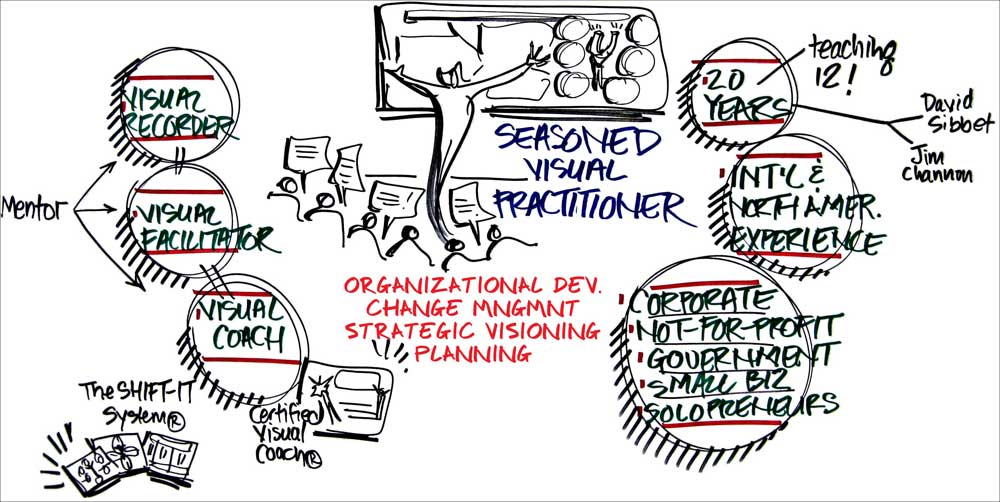 VISUAL
RECORDER
Mentor
VISUAL
FACILITATOR
VISUAL
COACH
The SHIFT-IT
System®
Certified
Visual
Coach®
SEASONED
VISUAL
PRACTITIONER
ORGANIZATIONAL DEV.
CHANGE MNGMNT
STRATEGIC VISIONING
PLANNING
20
YEARS
teaching
12!
David
Sibbet
Jim
Channon
INT'L &
NORTH AMER.
EXPERIENCE
CORPORATE
NOT-FOR-PROFIT
GOVERNMENT
SMALL BIZ
SOLOPRENEURS